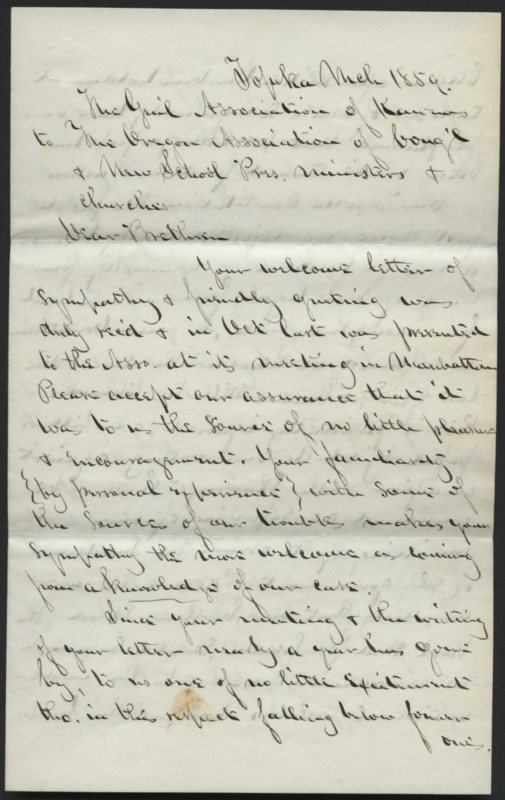 Topeka Mch 1859.
The Gnl Association of Kansas
to The Oregon Association of Cong'l
& New School Pres. ministers &
Churches
Dear Brethren
Your welcome letter of
sympathy & friendly greeting was
duly rec'd & in Oct last was presented
to the Asso. at its meeting in Manhattan
Please accept our assurance that it
was to us the source of no little pleasure
& encouragement. Your familiarity
(by personal experience) with some of
the sources of our troubles makes your
sympathy the more welcome as coming
from a knowledge of our case.
Since your meeting & the writing
of your letter nearly a year has gone
by, to us one of no little excitement
tho. in this respect falling below former
ones.